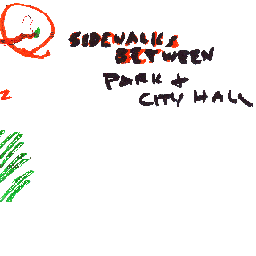 SIDEWALKS
BETWEEN
PARK +
CITY HALL